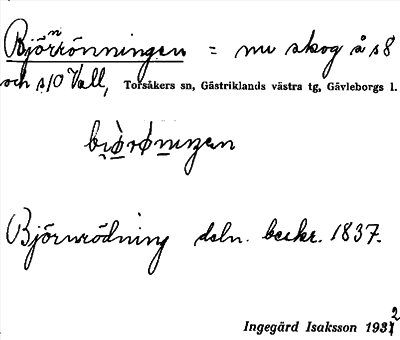 Björnrönningen = nu skog å s8
och s10 Vall, Torsåkers sn, Gästriklands västra tg, Gävleborgs l.
Björnrödning dsln. beskr. 1837.
Ingegärd Isaksson 1932